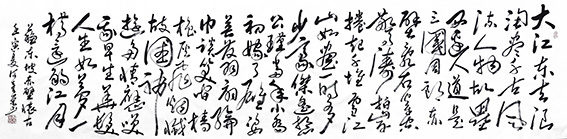 大江东去浪
淘尽千古风
流人物故垒
西边人道是
三國周郎赤
壁乱石穿空
驚涛拍岸
捲起千堆雪江
山如画一时多
少豪傑遥想
公瑾当年小乔
初嫁了雄姿
英发羽扇纶
巾谈笑间
樯橹飛烟滅
故國神
遊多情應笑
我早生華髪
人生如夢一
樽還酹江月
蘇东坡赤壁懷古
壬寅夏